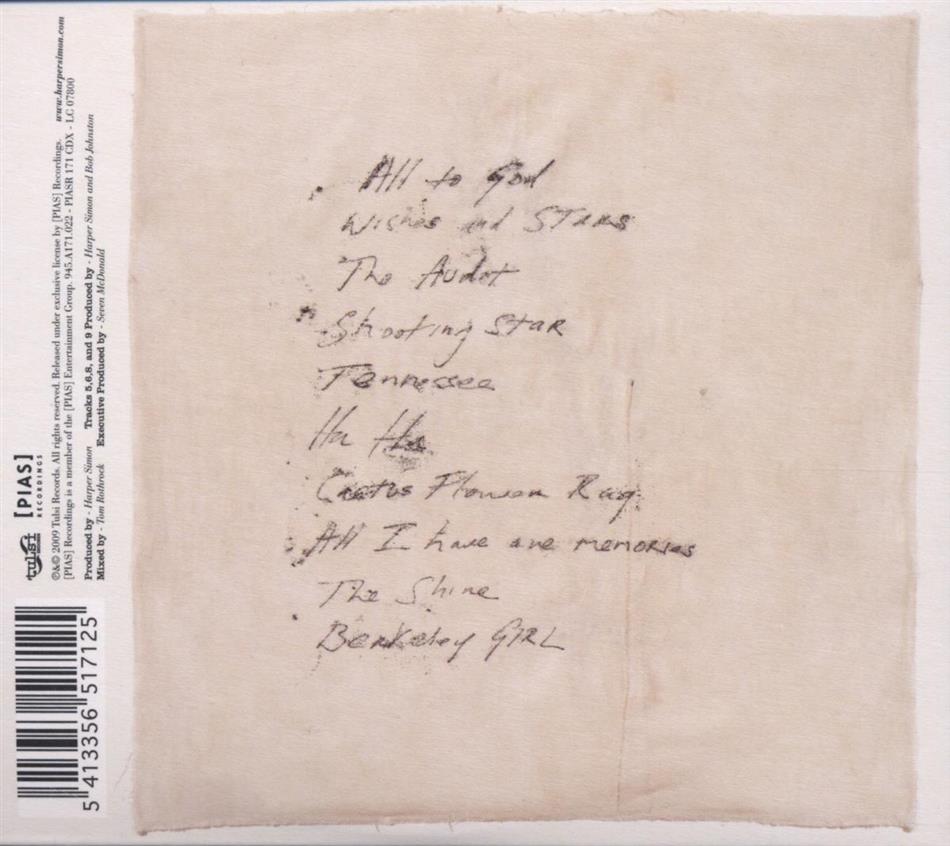 All to God
Wishes and STARS
The Audit
Shooting StaR
Tennessee
Ha Ha
Cactus Flower Rag
All I have are memories
The Shine
Berkeley GIRL
tulsi
[PIAS]
RECORDINGS
℗&© 2009 Tulsi Records. All rights reserved. Released under exclusive license by [PIAS] Recordings. www.harpersimon.com
[PIAS] Recordings is a member of the [PIAS] Entertainment Group. 945.A171.022 - PIASR 171 CDX - LC 07800
Produced by - Harper Simon Tracks 5,6,8, and 9 Produced by - Harper Simon and Bob Johnston
Mixed by - Tom Rothrock Executive Produced by - Seven McDonald
5 413356 517125